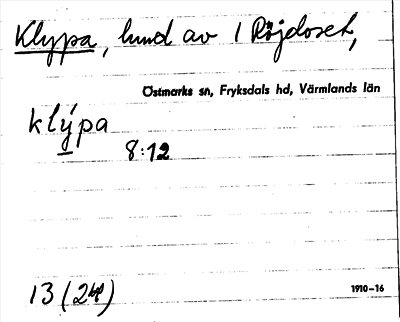 Klypa, hund av 1 Röjdoset,
Östmarks sn, Fryksdals hd, Värmlands län
klýpa
8:12
13 (2 bp)
1910–16